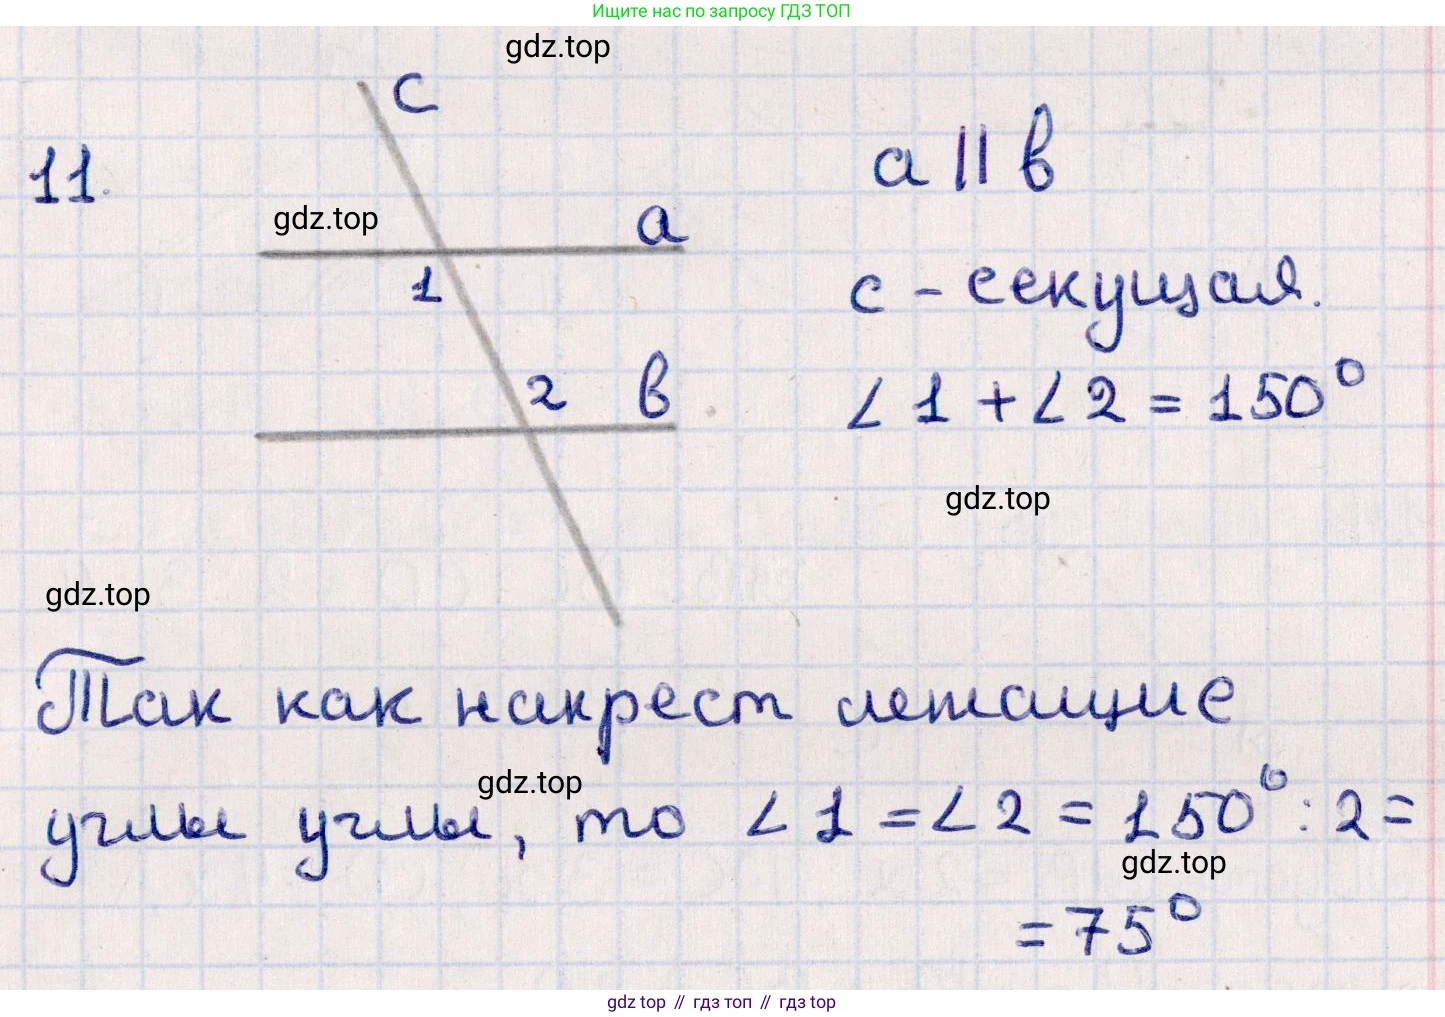 Ищите нас по запросу ГДЗ ТОП
gdz.top
c
11.
a || в
gdz.top
a
1
c - секущая.
2
в
∠1 + ∠2 = 150°
gdz.top
gdz.top
Так как накрест лежащие
gdz.top
углы углы, то ∠1 = ∠2 = 150° : 2 =
gdz.top
= 75°
gdz top // гдз топ // гдз top